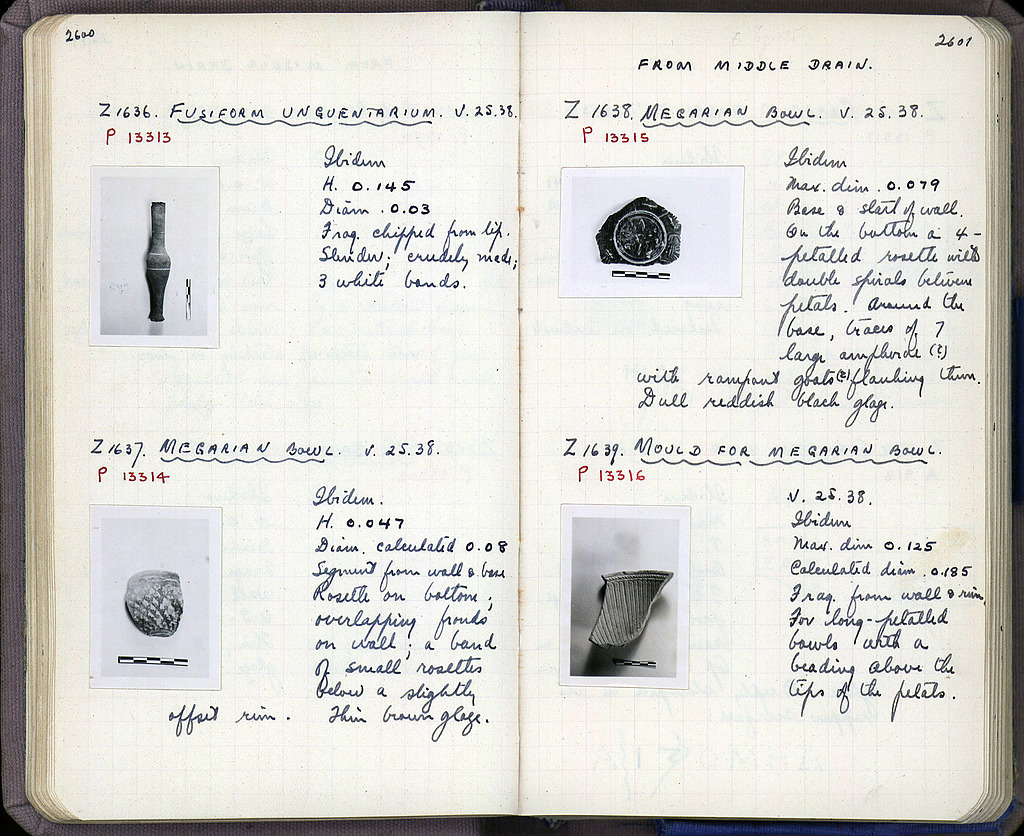 2600
Z 1636. FUSIFORM UNGUENTARIUM. V. 25.38.
P 13313
Ibidem
H. 0.145
Diam. 0.03
Frag. chipped from lip.
Slender; crudely made;
3 white bands.
Z 1637. MEGARIAN BOWL. V. 25.38.
P 13314
Ibidem.
H. 0.047
Diam. calculated 0.08
Segment from wall & base
Rosette on bottom;
overlapping fronds
on wall; a band
of small rosettes
below a slightly
offset rim. Thin brown glaze.
2601
FROM MIDDLE DRAIN.
Z 1638. MEGARIAN BOWL. V. 25.38.
P 13315
Ibidem
Max. dim. 0.079
Base & start of wall.
On the bottom a 4-
petalled rosette with
double spirals between
petals. Around the
base, traces of 7
large amphorae (?)
with rampant goats (?) flanking them.
Dull reddish black glaze.
Z 1639. MOULD FOR MEGARIAN BOWL.
P 13316
V. 25.38.
Ibidem
Max. dim 0.125
Calculated diam. 0.185
Frag. from wall & rim.
For long-petalled
bowls with a
beading above the
tips of the petals.